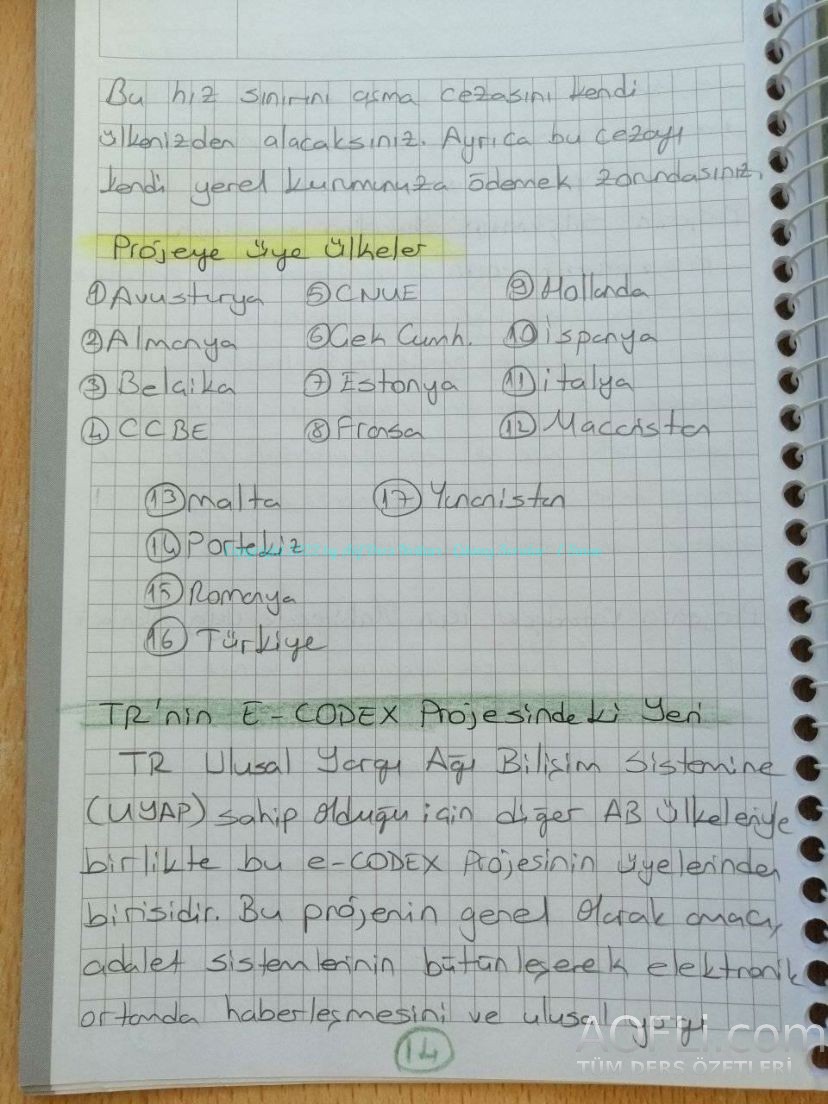 Bu hız sınırını aşma cezasını kendi
ülkenizden alacaksınız. Ayrıca bu cezayı
kendi yerel kurumunuza ödemek zorundasınız.
Projeye üye ülkeler
① Avusturya ⑤ CNUE ⑨ Hollanda
② Almanya ⑥ Çek Cumh. ⑩ İspanya
③ Belçika ⑦ Estonya ⑪ İtalya
④ CCBE ⑧ Fransa ⑫ Macaristan
⑬ Malta ⑰ Yunanistan
⑭ Portekiz
⑮ Romanya
⑯ Türkiye
TR'nin E-CODEX Projesindeki Yeri
TR Ulusal Yargı Ağı Bilişim Sistemine
(UYAP) sahip olduğu için diğer AB ülkeleriyle
birlikte bu e-CODEX Projesinin üyelerinden
birisidir. Bu projenin genel olarak amacı,
adalet sistemlerinin bütünleşerek elektronik
ortamda haberleşmesini ve ulusal yargı
14
AOFLi.com
TÜM DERS ÖZETLERİ